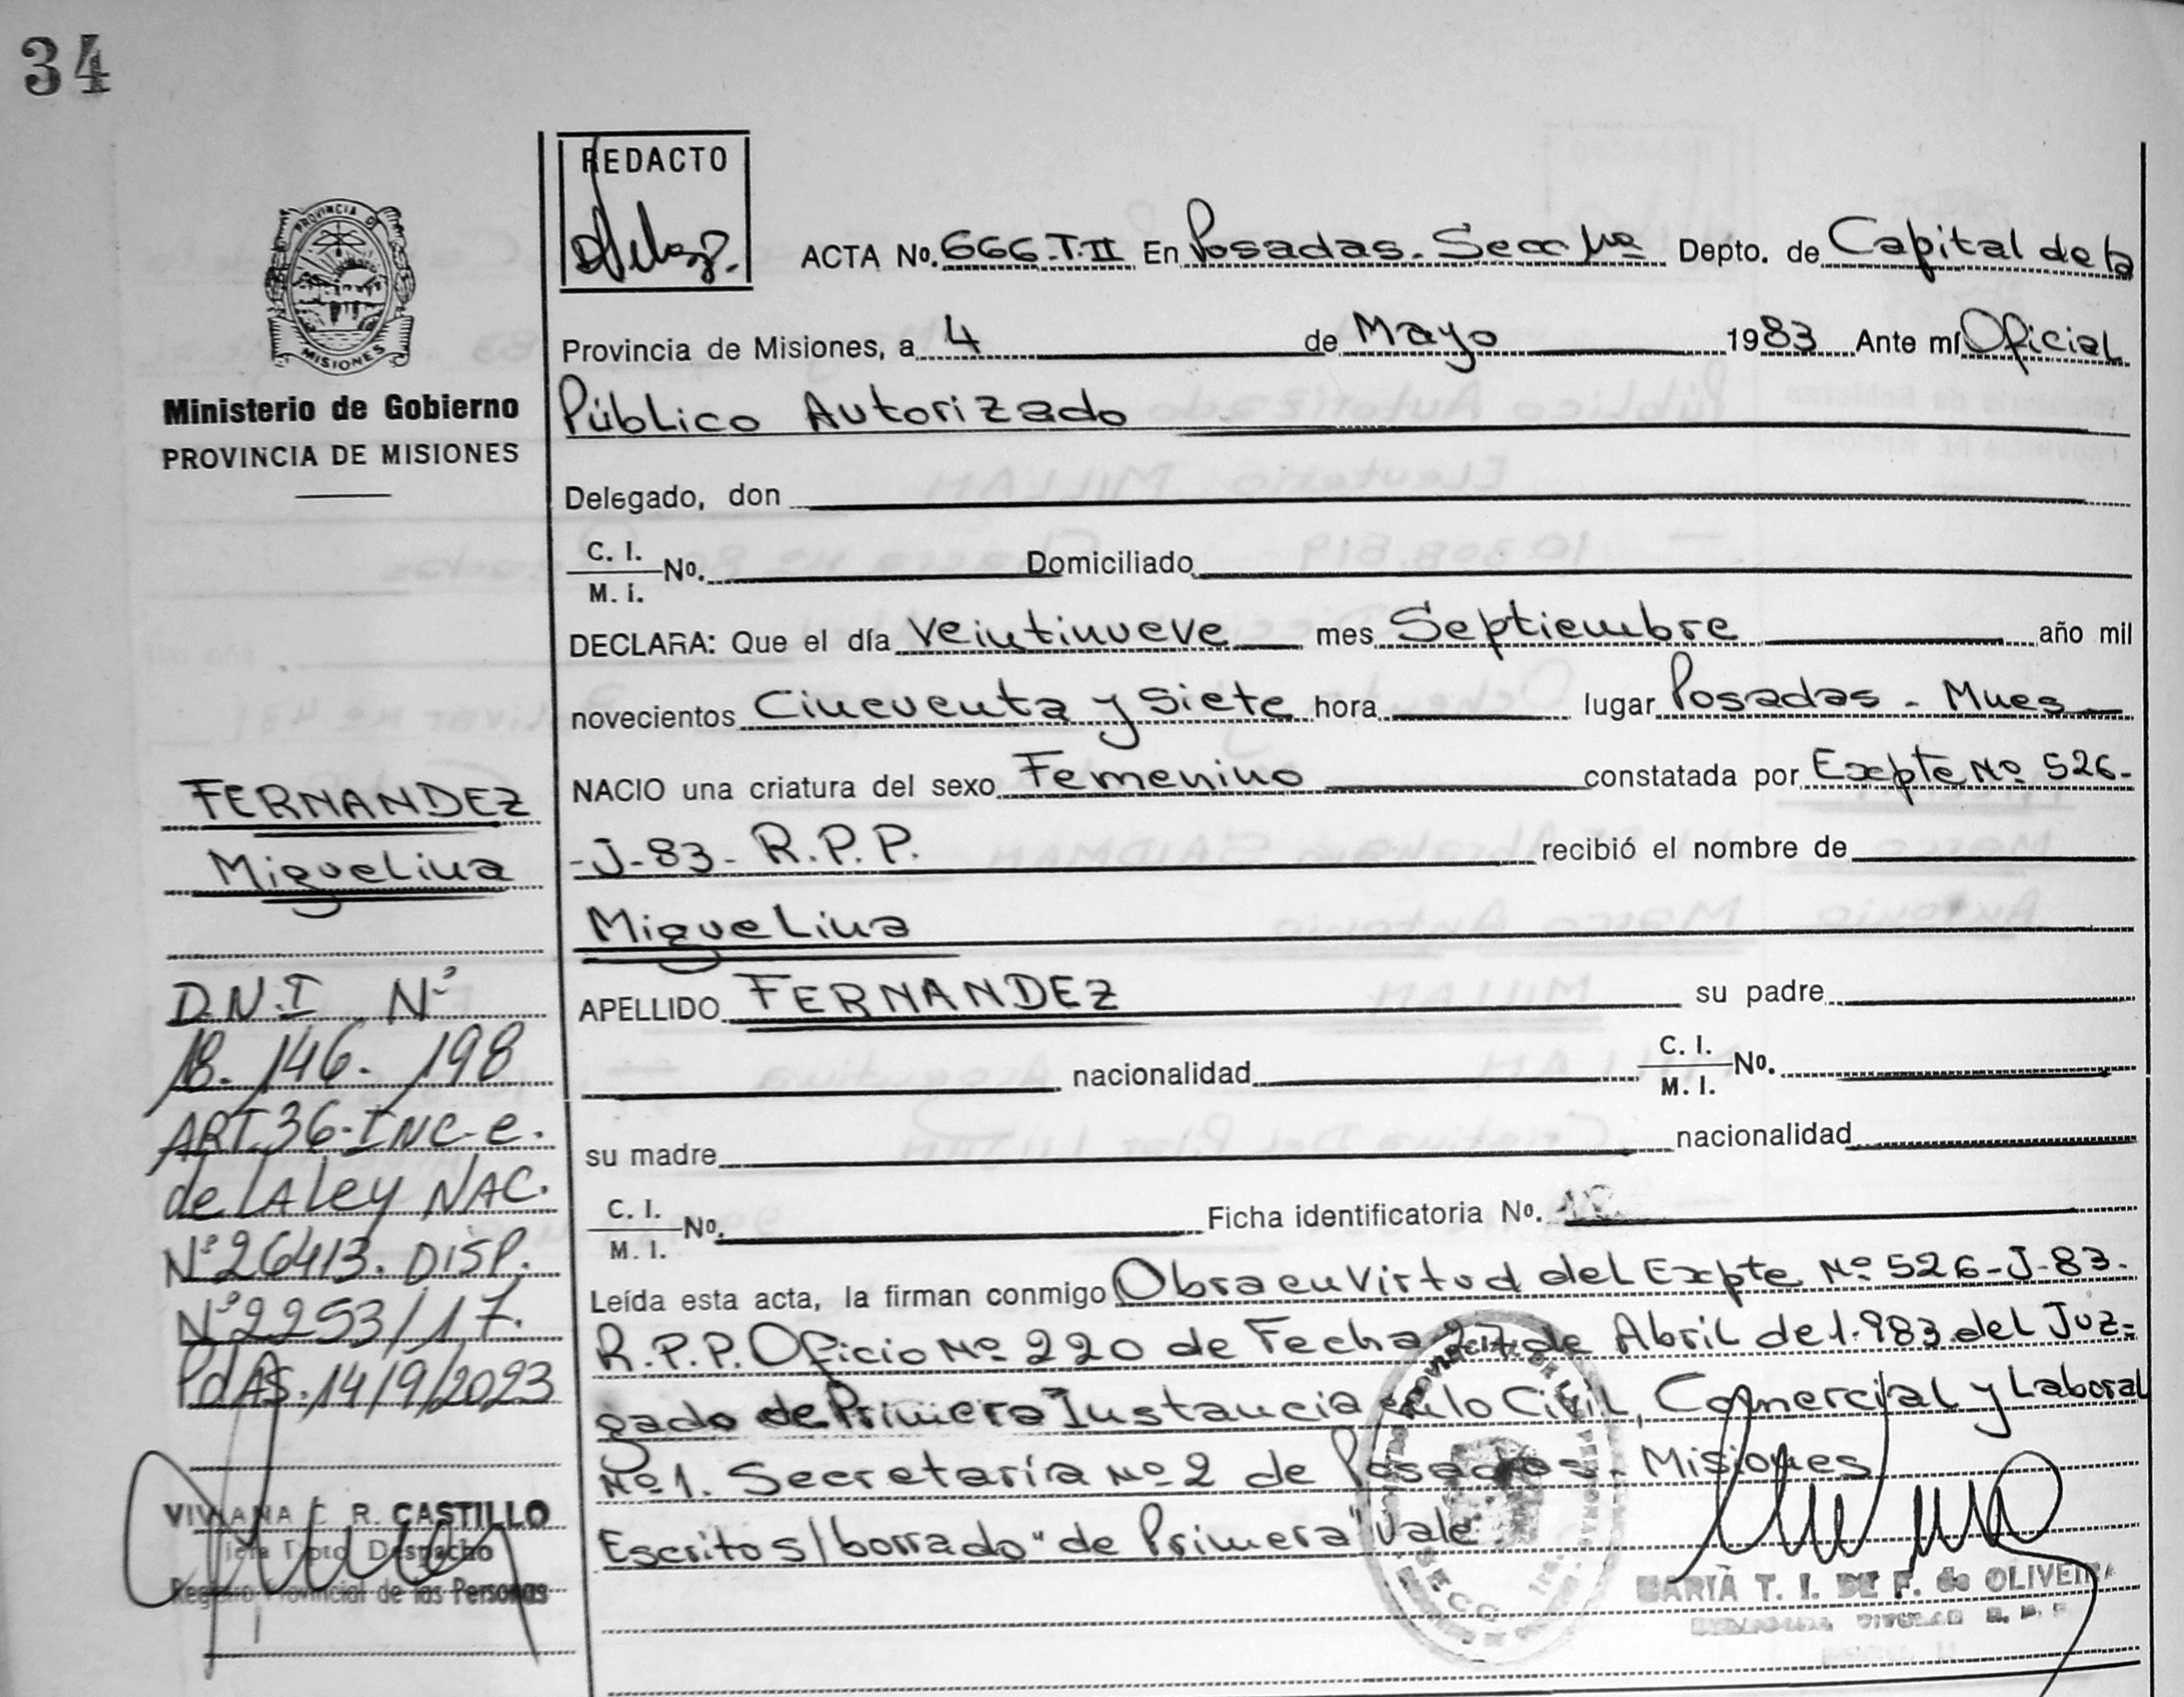 34
REDACTO
ACTA No. 666-T.II En Posadas. Secc 1ra Depto. de Capital de la
Provincia de Misiones, a 4 de Mayo 1983 Ante mí Oficial
Público Autorizado
Delegado, don
C. I.
M. I. No. Domiciliado
DECLARA: Que el día veintinueve mes Septiembre año mil
novecientos Cincuenta y siete hora lugar Posadas - Mnes
NACIO una criatura del sexo Femenino constatada por Expte Nº 526-
-J-83- R.P.P. recibió el nombre de
Miguelina
APELLIDO FERNANDEZ su padre
nacionalidad C. I.
M. I. No.
su madre nacionalidad
C. I.
M. I. No. Ficha identificatoria No.
Leída esta acta, la firman conmigo Obra en Virtud del Expte Nº 526-J-83.
R.P.P. Oficio Nº 220 de Fecha 27 de Abril de 1.983 del Juz-
gado de Primera Instancia en lo Civil, Comercial y Laboral
Nº 1. Secretaría Nº 2 de Posadas. Misiones
Escrito s/borrado "de Primera" Vale.
MARIA T. I. DE F. de OLIVEIRA
PROVINCIA DE
MISIONES
Ministerio de Gobierno
PROVINCIA DE MISIONES
FERNANDEZ
Miguelina
D.N.I Nº
18.146.198
ART.36-INC-e.
de LA Ley NAC.
Nº 26413. DISP.
Nº 2253/17.
PdAS.14/9/2023
VIVIANA C. R. CASTILLO
Jefa Dpto. Despacho
Registro Provincial de las Personas